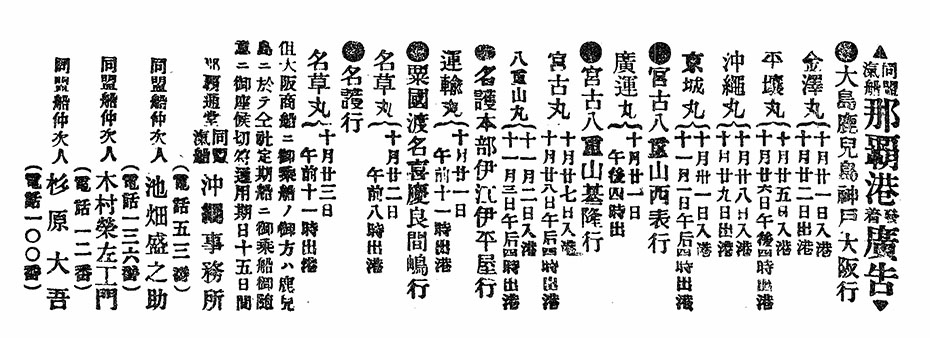 ▲同盟汽船那覇港発着廣告▼
●大島鹿兒島神戸大阪行
金澤丸 十月廿一日入港
十月廿二日出港
平壤丸 十月廿五日入港
十月廿六日午後四時出港
沖繩丸 十月廿八日入港
十月廿九日出港
京城丸 十月卅一日入港
十一月一日午后四時出港
●宮古八重山西表行
廣運丸 十月廿一日
午後四時出
●宮古八重山基隆行
宮古丸 十月廿七日入港
十月廿八日午后四時出港
八重山丸 十一月二日入港
十一月三日午后四時出港
●名護本部伊江伊平屋行
運輸丸 十月廿一日
午前十一時出港
●粟國渡名喜慶良間嶋行
名草丸 十月廿二日
午前八時出港
●名護行
名草丸 十月廿三日
午前十一時出港
但大阪商船ニ御乘船ノ御方ハ鹿兒
島ニ於テ仝社定期船ニ御乘船御随
意ニ御座候切符通用期日十五日間
那覇通堂 同盟汽船 沖繩事務所
(電話五三番)
同盟船仲次人 池畑盛之助
(電話一三六番)
同盟船仲次人 木村榮左工門
(電話一二番)
同盟船仲次人 杉原大吾
(電話一〇〇番)